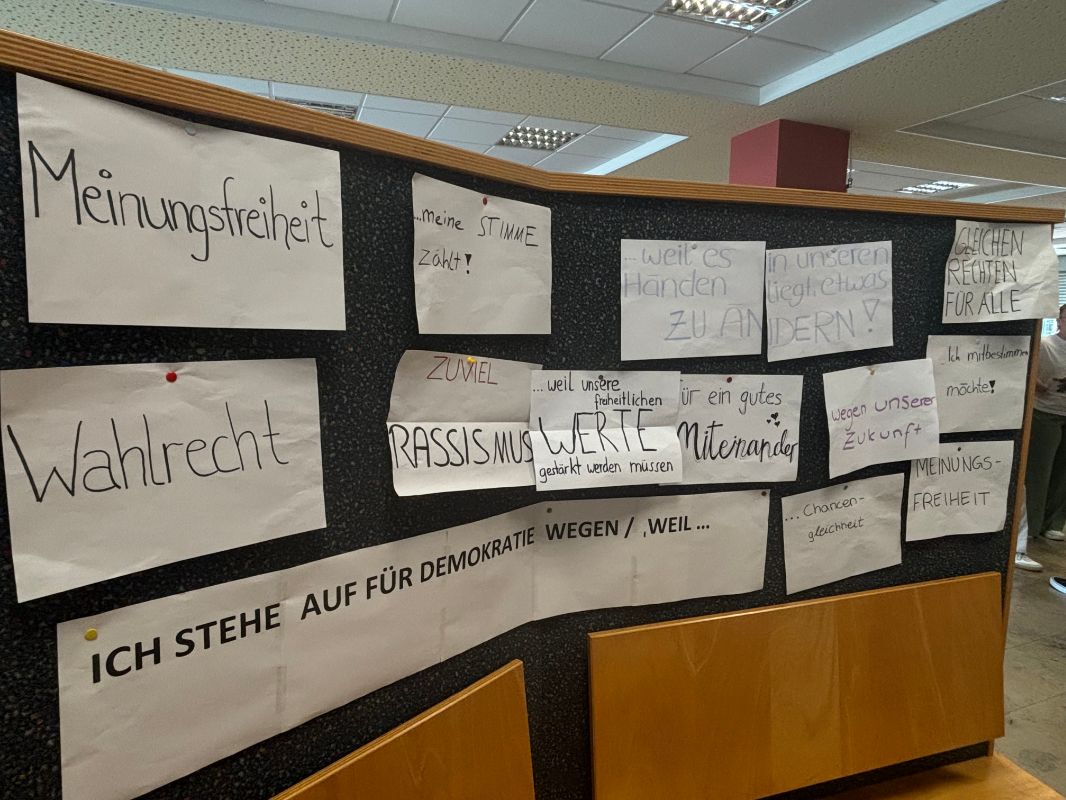 Meinungsfreiheit
...meine STIMME
zählt!
...weil es
Händen
ZU ÄN
in unseren
liegt, etwas
DERN!
GLEICHEN
RECHTEN
FÜR ALLE
Wahlrecht
ZUVIEL
RASSISMUS
...weil unsere
freiheitlichen
WERTE
gestärkt werden müssen
für ein gutes
Miteinander
wegen unserer
Zukunft
...Ich mitbestimmen
möchte!
MEINUNGS-
FREIHEIT
...Chancen-
gleichheit
ICH STEHE AUF FÜR DEMOKRATIE WEGEN / ‚WEIL ...